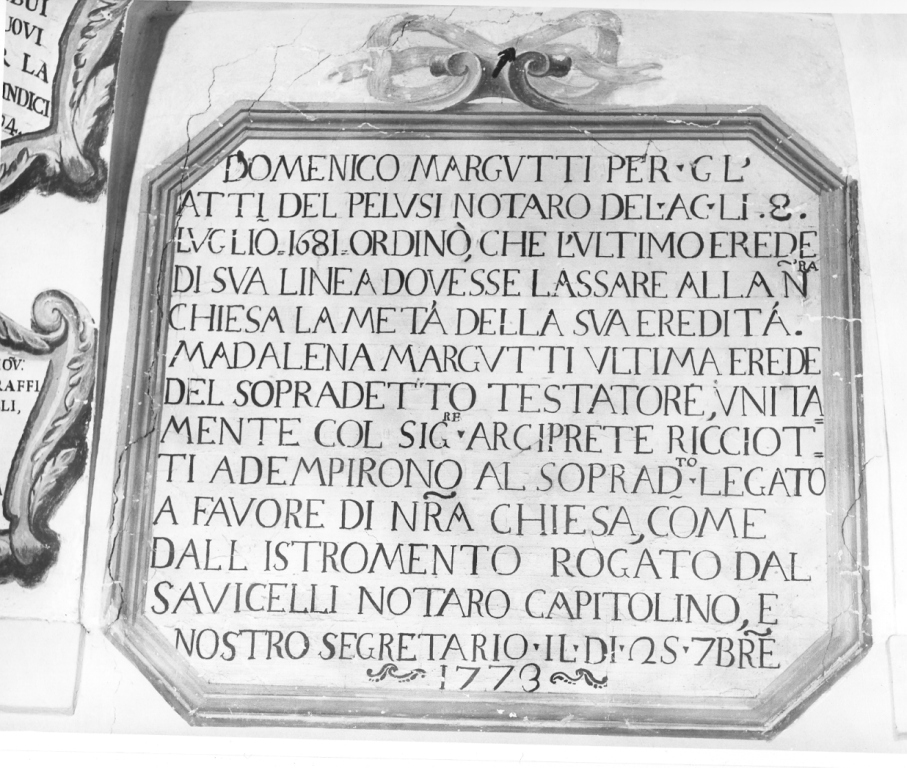 BUI
UOVI
R LA
INDICI
4.
NOV:
RAFFI
LI,
DOMENICO MARGVTTI PER·GL'
ATTI DEL PELVSI NOTARO DEL·AG·LI.8.
LVGLIO.1681.ORDINÒ, CHE L'VLTIMO EREDE
DI SVA LINEA DOVESSE LASSARE ALLA ÑRA
CHIESA LA METÁ DELLA SVA EREDITÁ.
MADALENA MARGVTTI VLTIMA EREDE
DEL SOPRADETTO TESTATORE, VNITA=
MENTE COL SIG.RE ARCIPRETE RICCIOT=
TI ADEMPIRONO AL SOPRAD.TO LEGATO
A FAVORE DI NR̃A CHIESA, COME
DALL ISTROMENTO ROGATO DAL
SAVICELLI NOTARO CAPITOLINO, E
NOSTRO SEGRETARIO·IL·DI·25·7BR̃E
1773